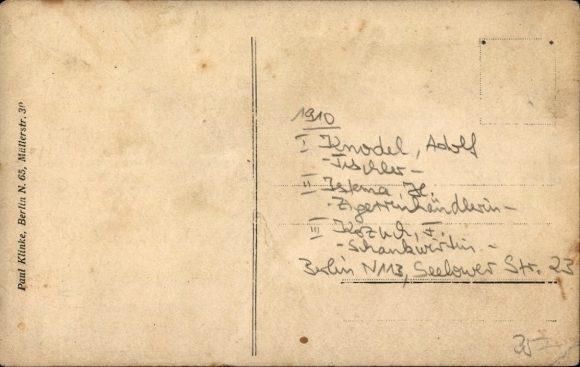 Paul Klinke, Berlin N. 65, Müllerstr. 30
1910
I Knodel, Adolf
- Tischler -
II Iskma, H.
- Zigarrenhändlerin -
III Kozuch, F.
- Schankwirtin -
Berlin N113, Seelower Str. 23